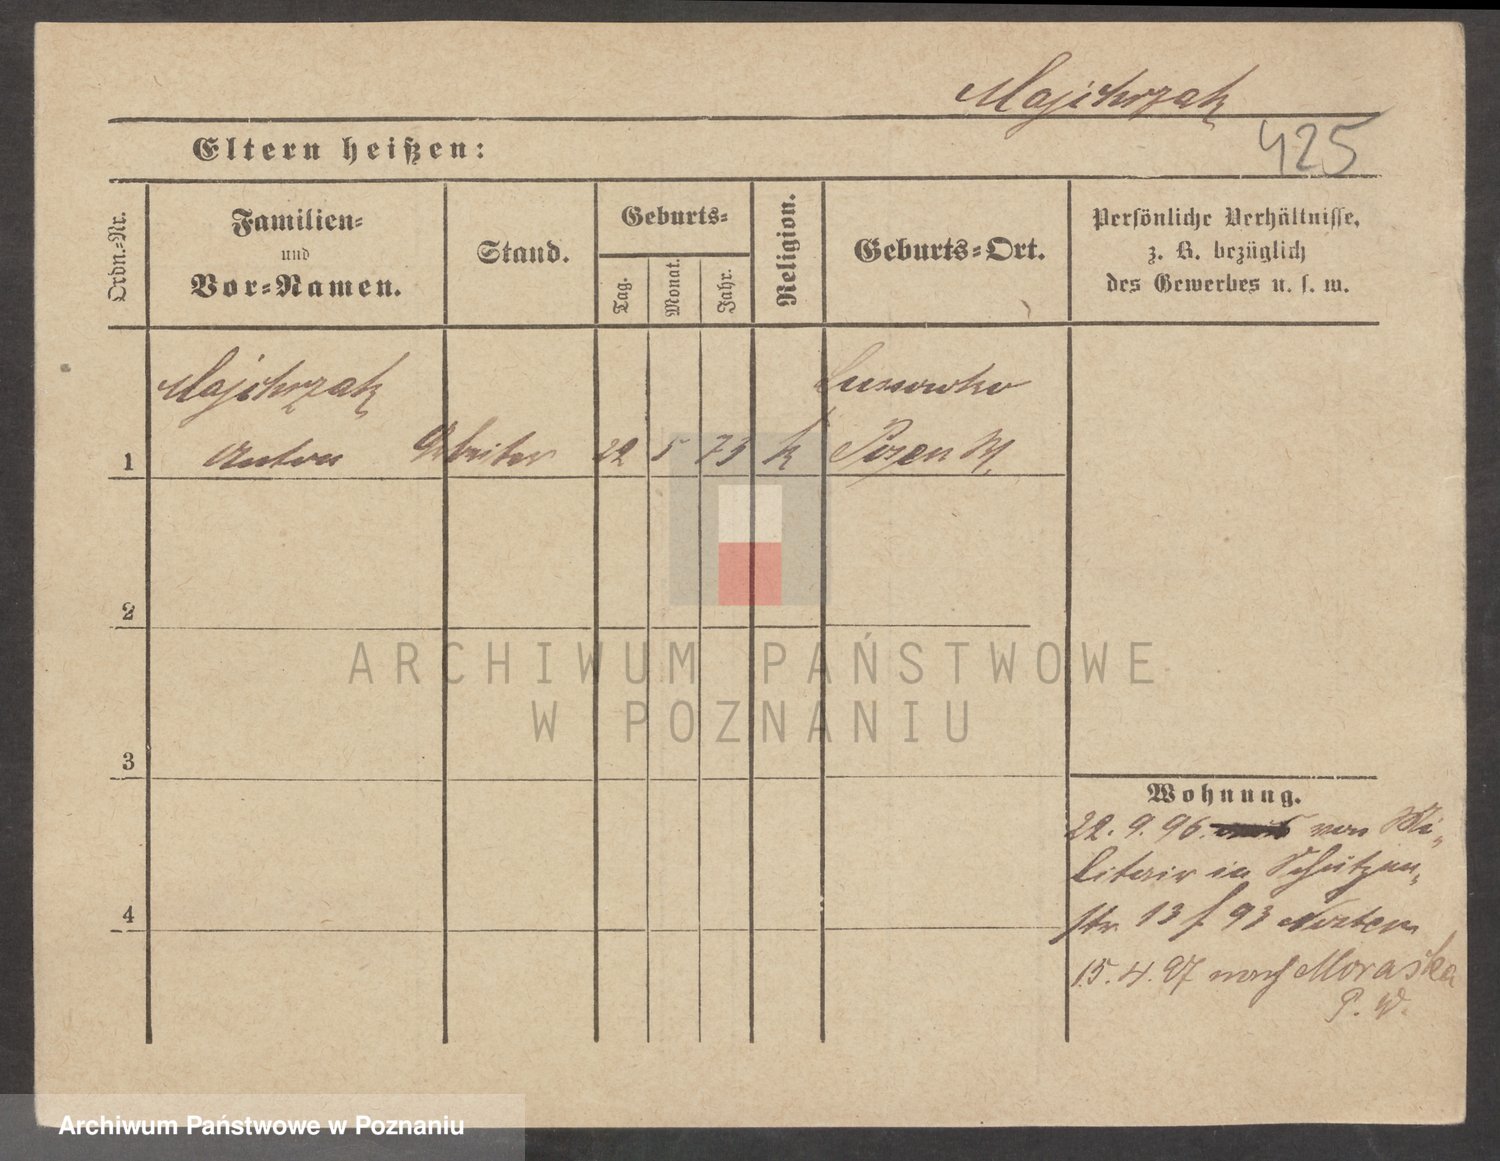 Majchrzak
425
Eltern heißen:
Ordn.-Nr.
Familien-
und
Vor-Namen.
Stand.
Geburts-
Tag.
Monat.
Jahr.
Religion.
Geburts-Ort.
Persönliche Verhältnisse,
z. B. bezüglich
des Gewerbes u. s. w.
Majchrzak
Lussowko
1 Anton Arbeiter 22 5 73 k Posen W.
2
3
4
Wohnung.
22. 9. 96 von Mi-
litair in Schützen-
str 13 f 93
15. 4. 97 nach Moraśka
P. W.
ARCHIWUM PAŃSTWOWE
W POZNANIU
Archiwum Państwowe w Poznaniu